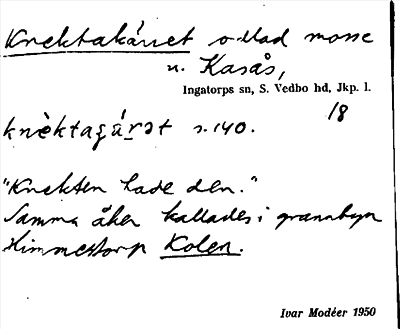 Knektakäret odlad mosse
n. Kasås,
Ingatorps sn, S. Vedbo hd, Jkp. l.
18
knèktaçä́rət s. 140.
"Knekten hade den."
Samma åker kallades i grannbyn
Himmestorp Kolen.
Ivar Modéer 1950